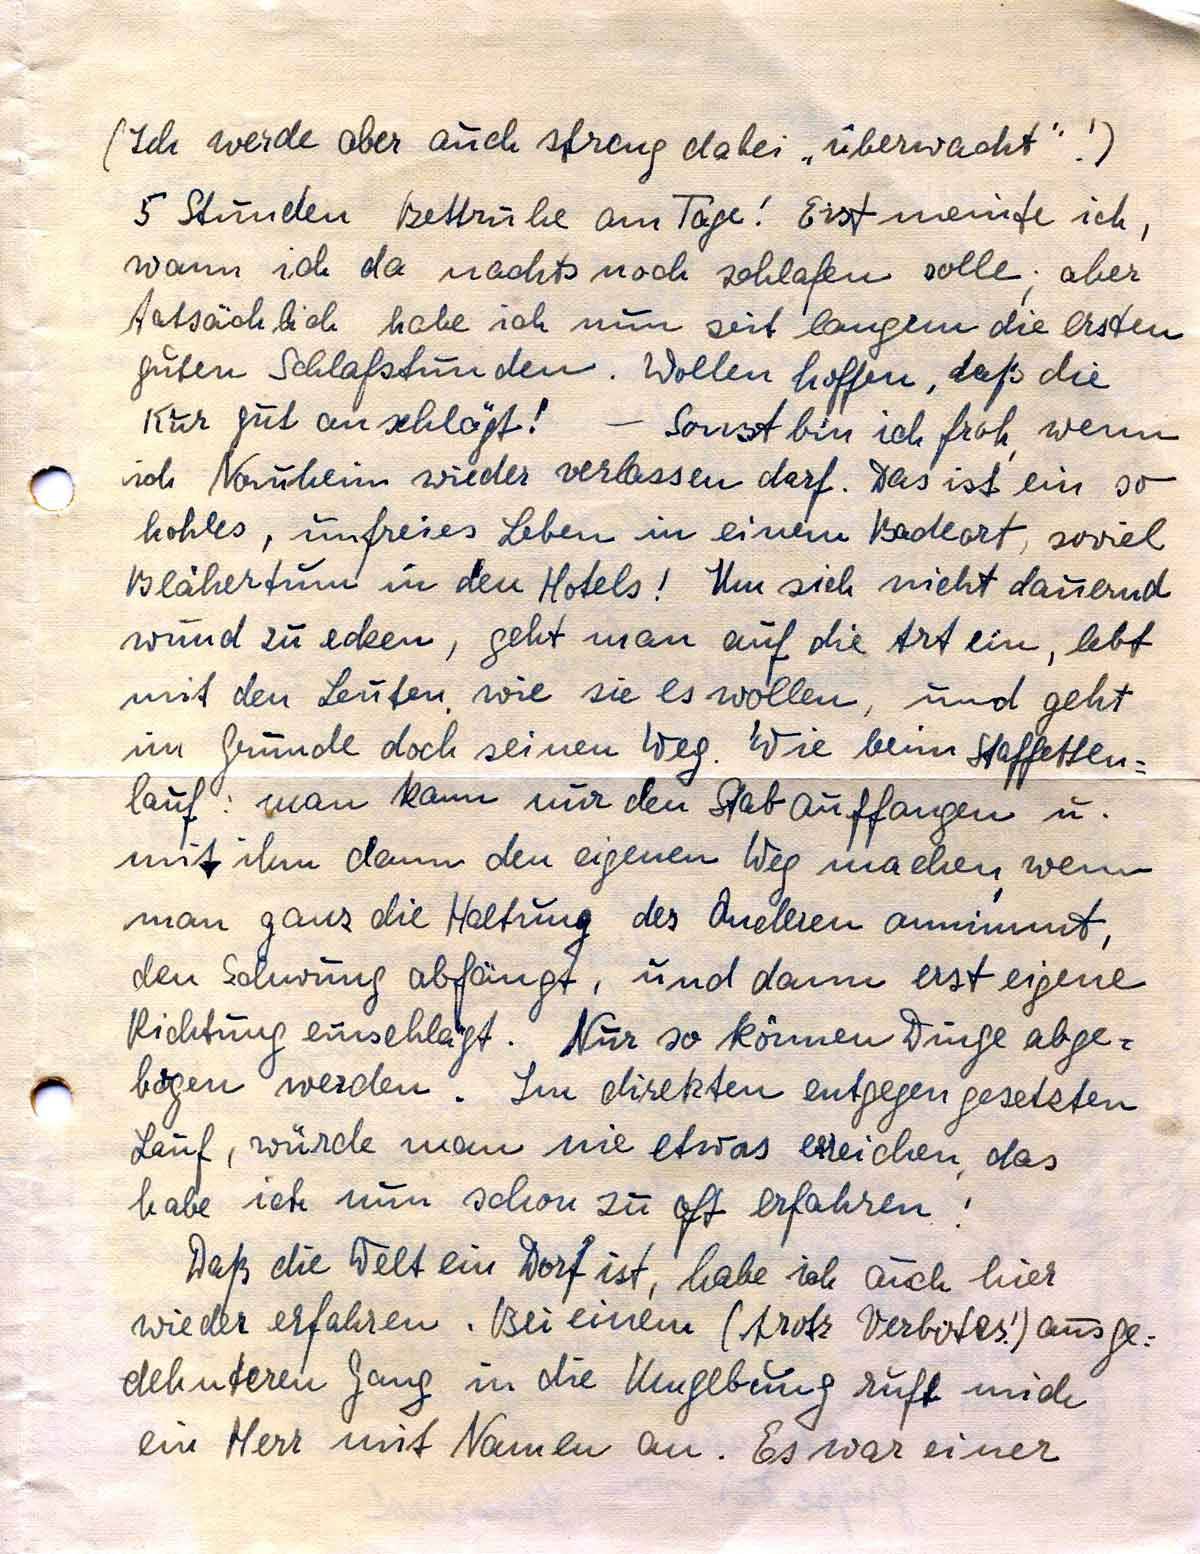 (Ich werde aber auch streng dabei „überwacht"!)
5 Stunden Bettruhe am Tage! Erst meinte ich,
wann ich da nachts noch schlafen solle; aber
tatsächlich habe ich nun seit langem die ersten
guten Schlafstunden. Wollen hoffen, daß die
Kur gut anschlägt! — Sonst bin ich froh, wenn
ich Nauheim wieder verlassen darf. Das ist ein so
hohles, unfreies Leben in einem Badeort, soviel
Blähertum in den Hotels! Um sich nicht dauernd
wund zu ecken, geht man auf die Art ein, lebt
mit den Leuten, wie sie es wollen, und geht
im Grunde doch seinen Weg. Wie beim Staffetten=
lauf: man kann nur den Stab auffangen u.
mit ihm dann den eigenen Weg machen, wenn
man ganz die Haltung des Anderen annimmt,
den Schwung abfängt, und dann erst eigene
Richtung einschlägt. Nur so können Dinge abge=
bogen werden. Im direkten entgegengesetzten
Lauf, würde man nie etwas erreichen, das
habe ich nun schon zu oft erfahren!
Daß die Welt ein Dorf ist, habe ich auch hier
wieder erfahren. Bei einem (trotz Verbotes!) ausge=
dehnteren Gang in die Umgebung ruft mich
ein Herr mit Namen an. Es war einer